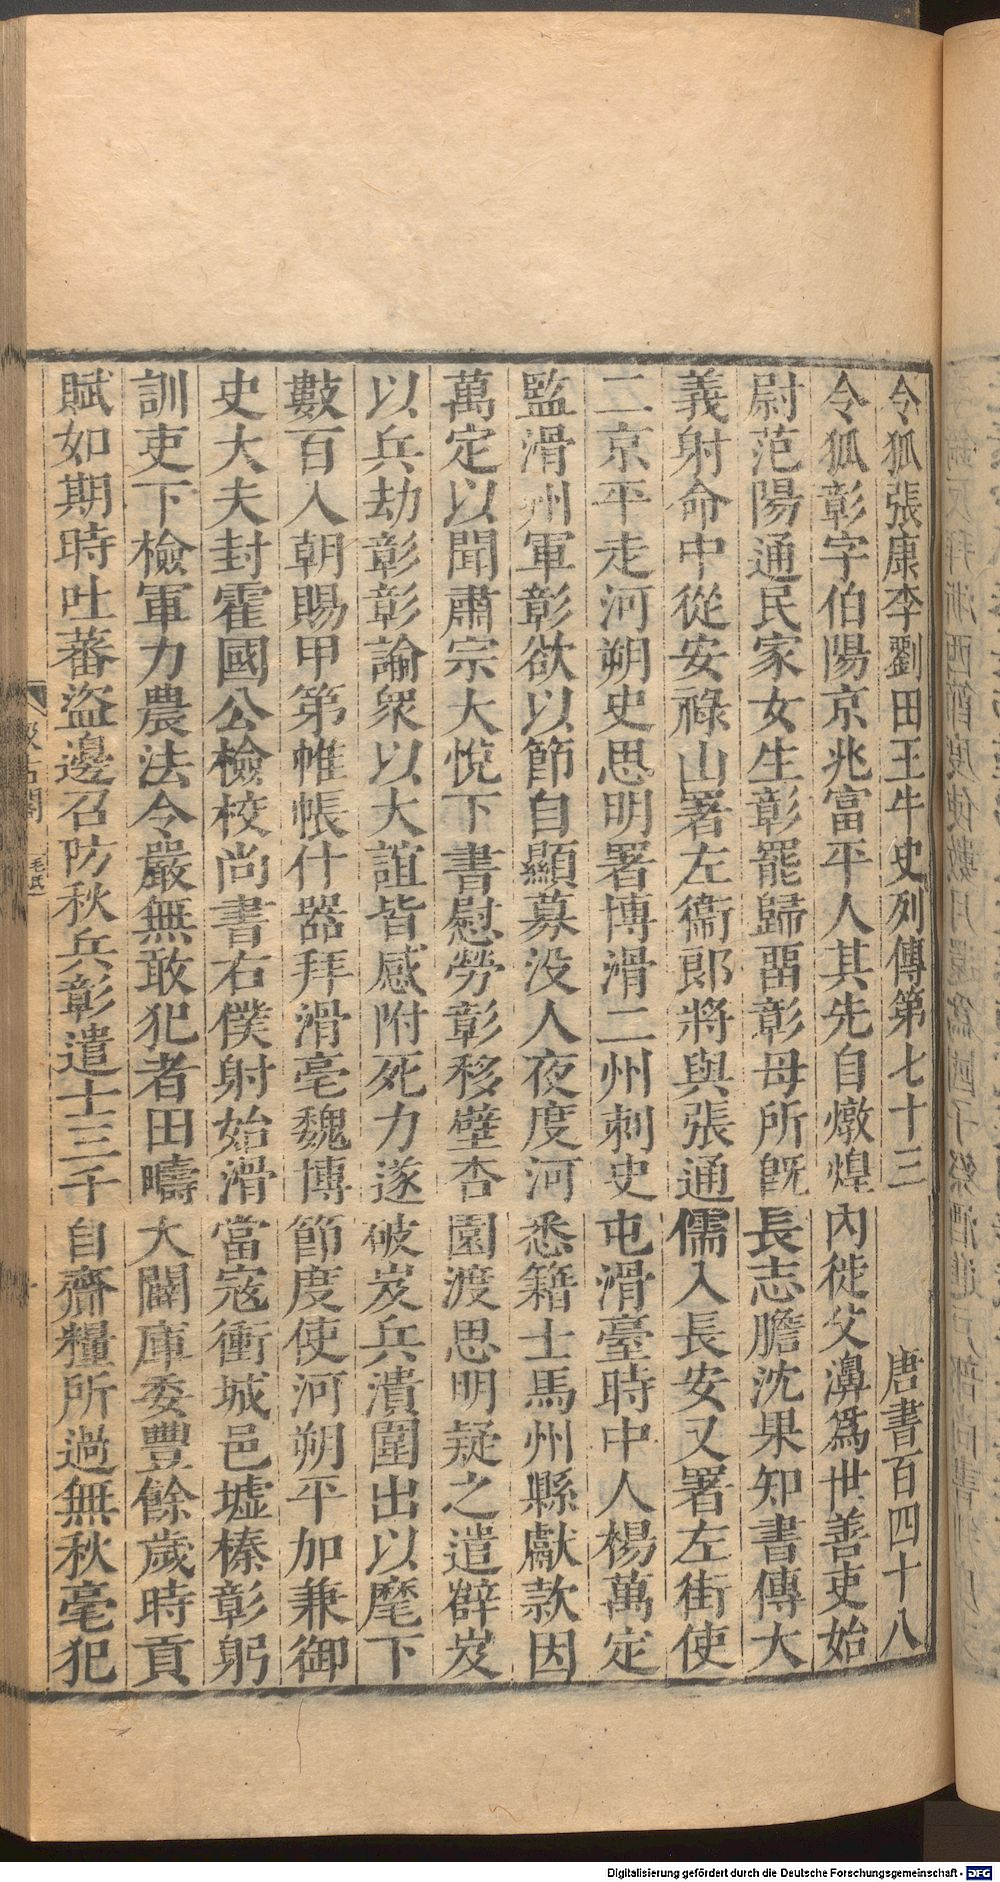 令狐張康李劉田王牛史列傳第七十三　唐書百四十八
令狐彰字伯陽京兆富平人其先自燉煌內徙父濞爲世善吏始
尉范陽通民家女生彰罷歸畱彰母所既長志膽沈果知書傳大
義射命中從安祿山署左衞郎將與張通儒入長安又署左街使
二京平走河朔史思明署博滑二州刺史屯滑臺時中人楊萬定
監滑州軍彰欲以節自顯募没人夜度河悉籍士馬州縣獻款因
萬定以聞肅宗大悅下書慰勞彰移壁杏園渡思明疑之遣薛岌
以兵劫彰彰諭衆以大誼皆感附死力遂破岌兵潰圍出以麾下
數百人朝賜甲第帷帳什器拜滑亳魏博節度使河朔平加兼御
史大夫封霍國公檢校尚書右僕射始滑當寇衝城邑墟榛彰躬
訓吏下檢軍力農法令嚴無敢犯者田疇大闢庫委豐餘歲時貢
賦如期時吐蕃盜邊召防秋兵彰遣士三千自齎糧所過無秋毫犯
汲古閣
毛氏
Digitalisierung gefördert durch die Deutsche Forschungsgemeinschaft - DFG